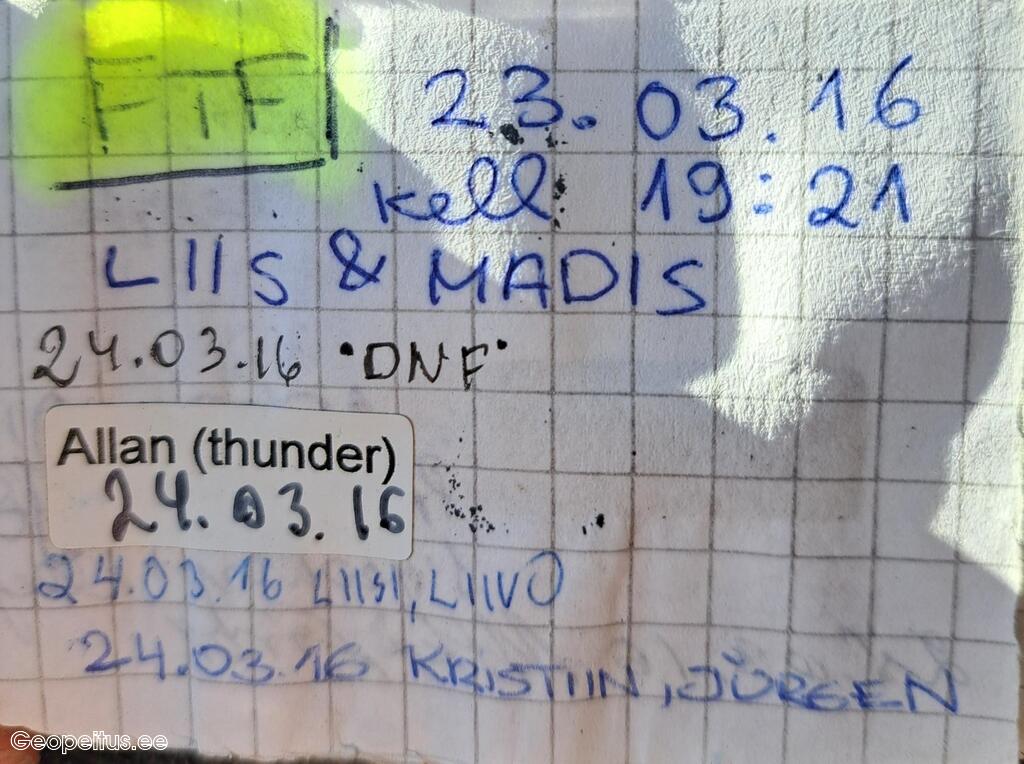 FTF 23.03.16
kell 19:21
LIIS & MADIS
24.03.16 "DNF"
Allan (thunder)
24.03.16
24.03.16 LIISI, LIIVO
24.03.16 KRISTIIN, JÜRGEN
Geopeitus.ee